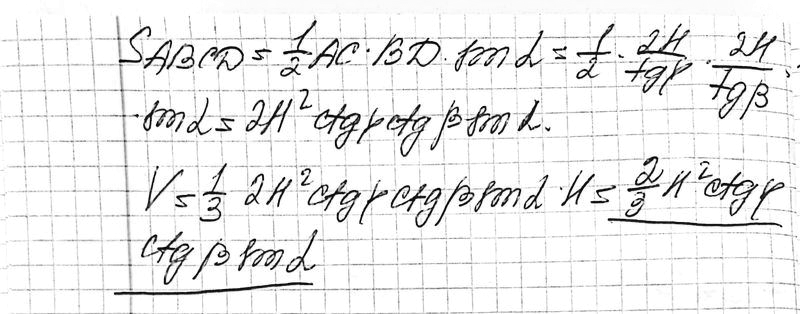 S_ABCD = 1/2 AC · BD · sin α = 1/2 · 2H/tgγ · 2H/tgβ ·
· sin α = 2H² ctgγ ctgβ sin α.
V = 1/3 2H² ctgγ ctgβ sin α · H = 2/3 H² ctgγ
ctgβ sin α